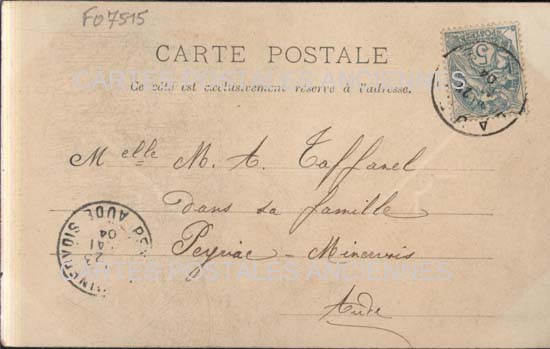 FO7515
CARTE POSTALE
CARTES POSTALES ANCIENNES
Ce côté est exclusivement réservé à l'adresse.
Melle M. A. Taffanel
dans sa famille
Peyriac - Minervois
CARTES POSTALES ANCIENNES
Aude
5
04
AUDE
23
MAI
04